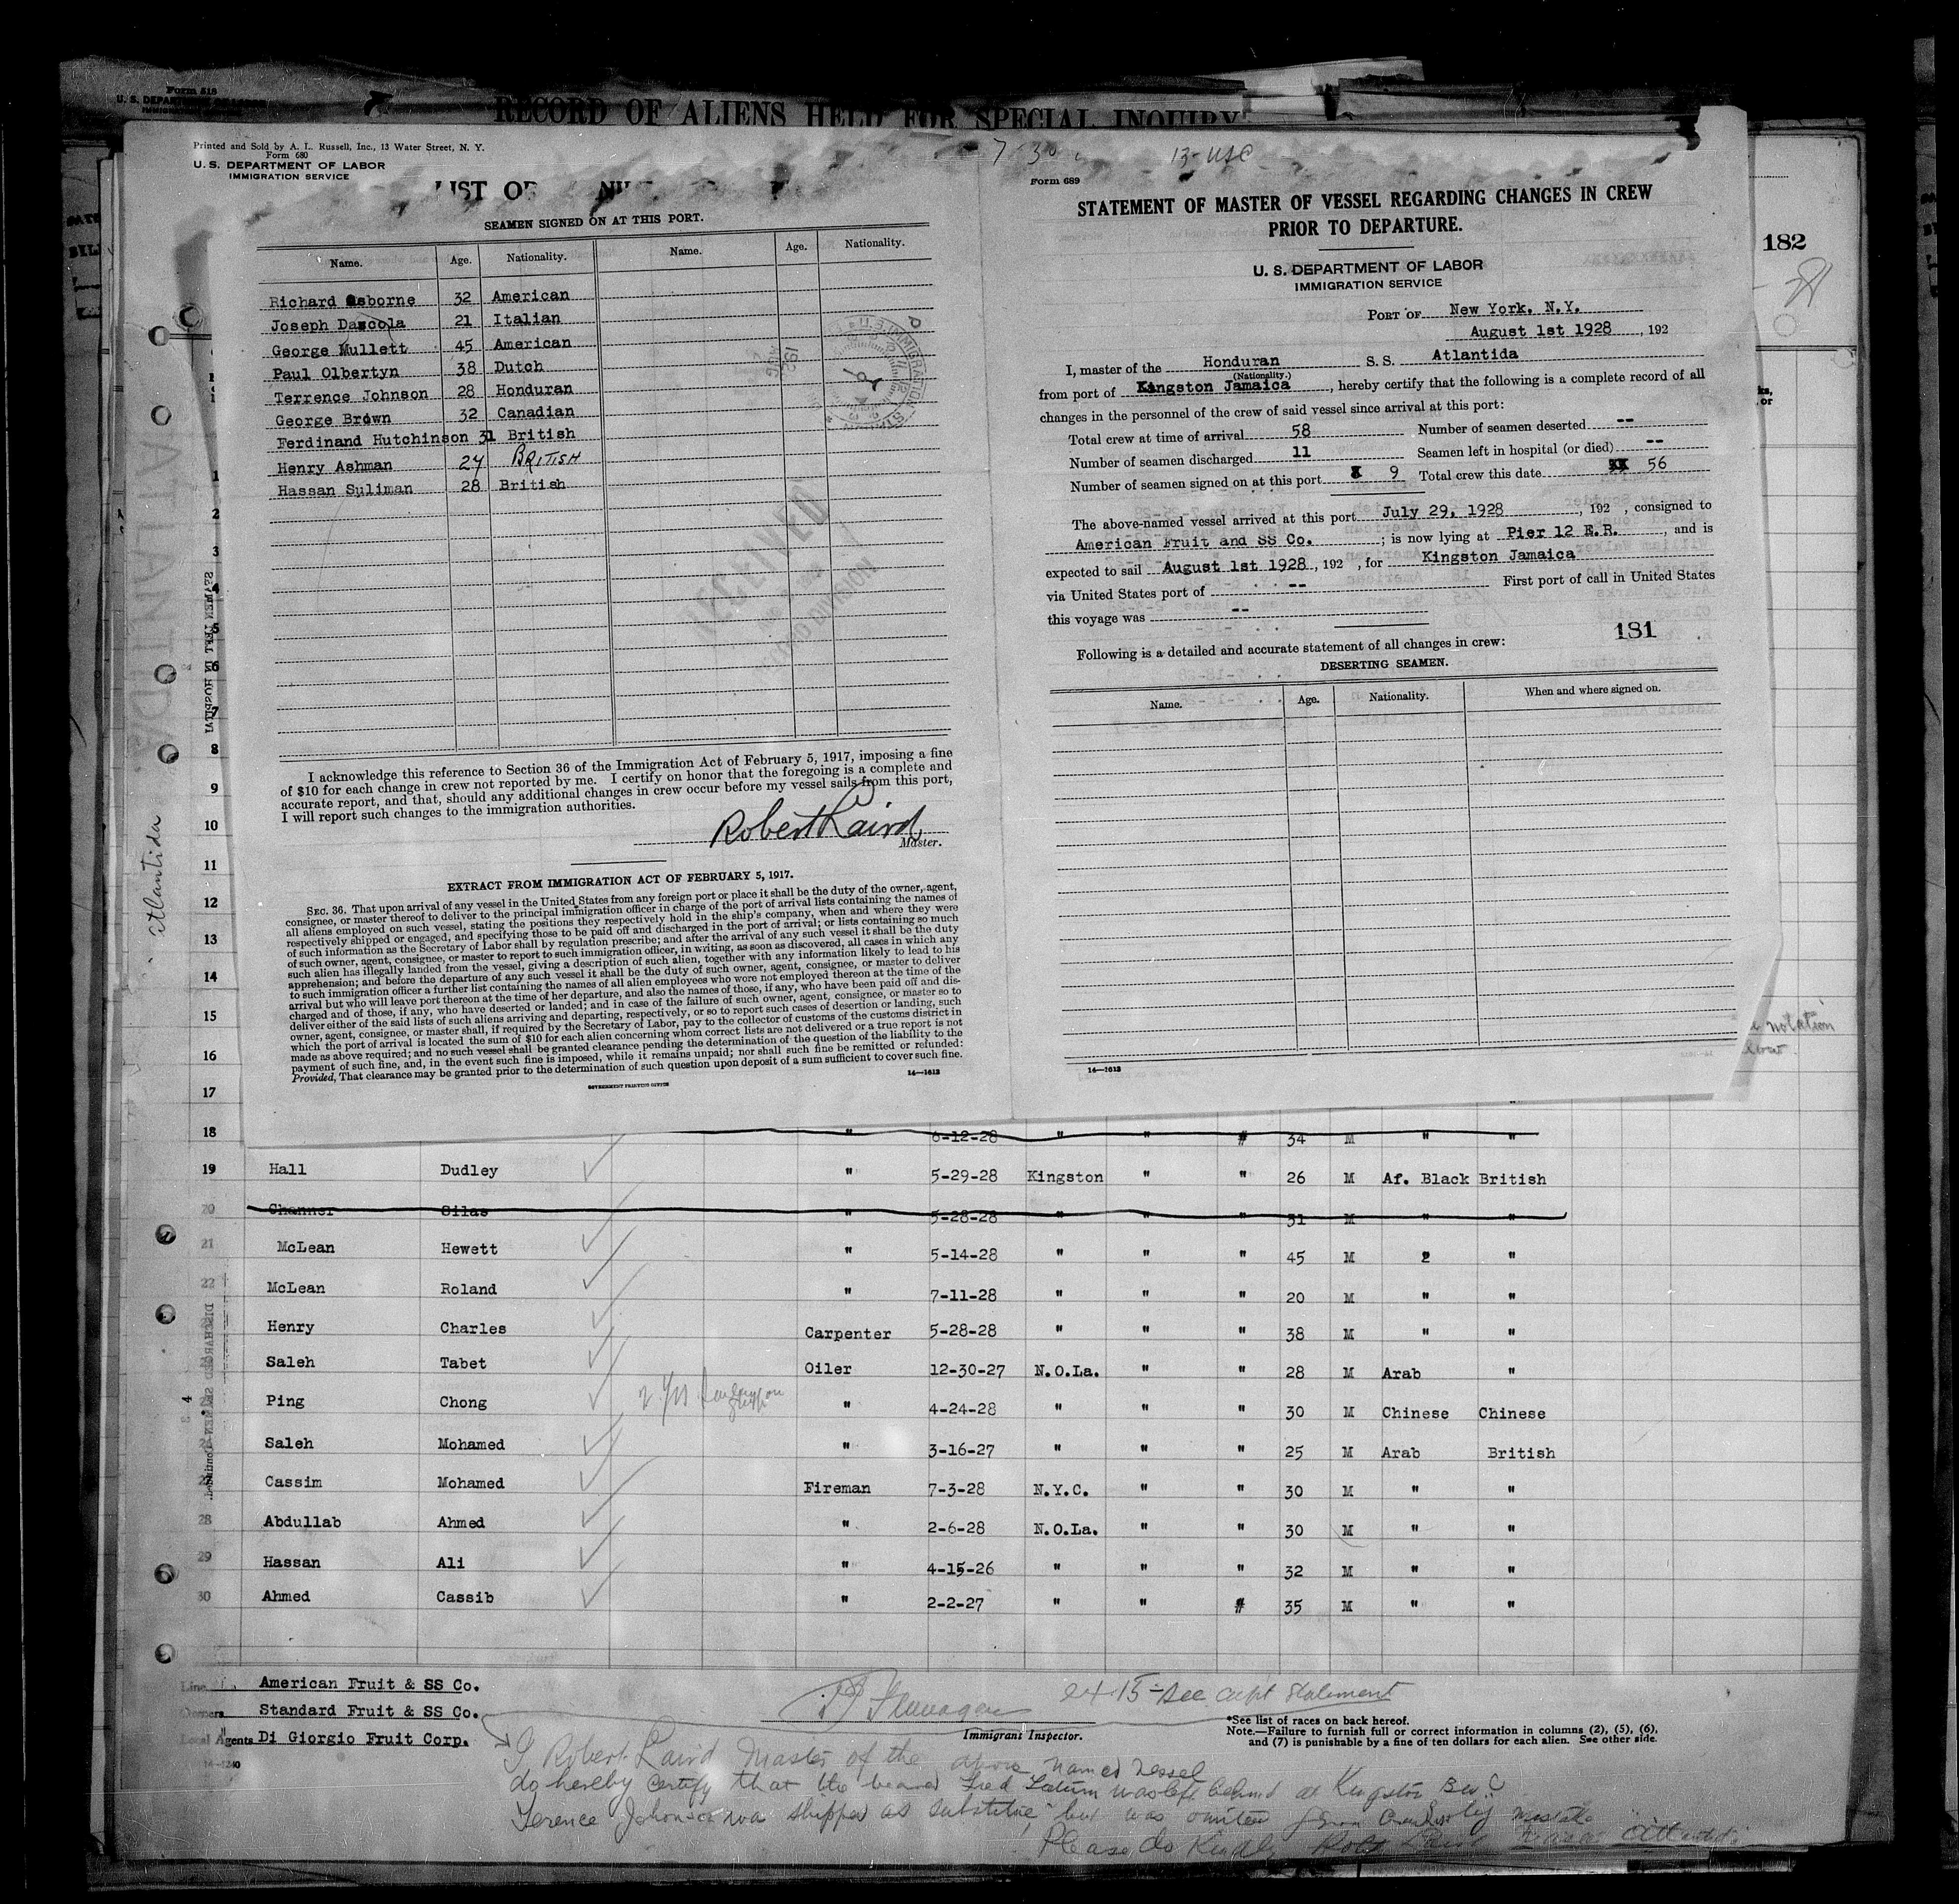 Form 518
RECORD OF ALIENS HELD FOR SPECIAL INQUIRY
Printed and Sold by A. L. Russell, Inc., 13 Water Street, N. Y.
Form 680
U. S. DEPARTMENT OF LABOR
IMMIGRATION SERVICE
LIST OF
SEAMEN SIGNED ON AT THIS PORT.
Name. Age. Nationality. Name. Age. Nationality.
Richard Osborne 32 American
Joseph Dascola 21 Italian
George Mullett 45 American
Paul Olbertyn 38 Dutch
Terrence Johnson 28 Honduran
George Brown 32 Canadian
Ferdinand Hutchinson 31 British
Henry Ashman 24 BRITISH
Hassan Suliman 28 British
RECEIVED
I acknowledge this reference to Section 36 of the Immigration Act of February 5, 1917, imposing a fine
of $10 for each change in crew not reported by me. I certify on honor that the foregoing is a complete and
accurate report, and that, should any additional changes in crew occur before my vessel sails from this port,
I will report such changes to the immigration authorities.
Robert Laird
Master.
EXTRACT FROM IMMIGRATION ACT OF FEBRUARY 5, 1917.
SEC. 36. That upon arrival of any vessel in the United States from any foreign port or place it shall be the duty of the owner, agent,
consignee, or master thereof to deliver to the principal immigration officer in charge of the port of arrival lists containing the names of
all aliens employed on such vessel, stating the positions they respectively hold in the ship's company, when and where they were
respectively shipped or engaged, and specifying those to be paid off and discharged in the port of arrival; or lists containing so much
of such information as the Secretary of Labor shall by regulation prescribe; and after the arrival of any such vessel it shall be the duty
of such owner, agent, consignee, or master to report to such immigration officer, in writing, as soon as discovered, all cases in which any
such alien has illegally landed from the vessel, giving a description of such alien, together with any information likely to lead to his
apprehension; and before the departure of any such vessel it shall be the duty of such owner, agent, consignee, or master to deliver
to such immigration officer a further list containing the names of all alien employees who were not employed thereon at the time of the
arrival but who will leave port thereon at the time of her departure, and also the names of those, if any, who have been paid off and dis-
charged and of those, if any, who have deserted or landed; and in case of the failure of such owner, agent, consignee, or master so to
deliver either of the said lists of such aliens arriving and departing, respectively, or so to report such cases of desertion or landing, such
owner, agent, consignee, or master shall, if required by the Secretary of Labor, pay to the collector of customs of the customs district in
which the port of arrival is located the sum of $10 for each alien concerning whom correct lists are not delivered or a true report is not
made as above required; and no such vessel shall be granted clearance pending the determination of the question of the liability to the
payment of such fine, and, in the event such fine is imposed, while it remains unpaid; nor shall such fine be remitted or refunded:
Provided, That clearance may be granted prior to the determination of such question upon deposit of a sum sufficient to cover such fine.
GOVERNMENT PRINTING OFFICE
14—1613
Form 689
STATEMENT OF MASTER OF VESSEL REGARDING CHANGES IN CREW
PRIOR TO DEPARTURE.
U. S. DEPARTMENT OF LABOR
IMMIGRATION SERVICE
PORT OF New York, N.Y.
August 1st 1928 , 192
I, master of the Honduran S. S. Atlantida
(Nationality.)
from port of Kingston Jamaica , hereby certify that the following is a complete record of all
changes in the personnel of the crew of said vessel since arrival at this port:
Total crew at time of arrival 58 Number of seamen deserted --
Number of seamen discharged 11 Seamen left in hospital (or died) --
Number of seamen signed on at this port 9 Total crew this date 56
The above-named vessel arrived at this port July 29, 1928 , 192 , consigned to
American Fruit and SS Co. ; is now lying at Pier 12 E.R. , and is
expected to sail August 1st 1928 , 192 , for Kingston Jamaica
via United States port of -- First port of call in United States
this voyage was --
181
Following is a detailed and accurate statement of all changes in crew:
DESERTING SEAMEN.
Name. Age. Nationality. When and where signed on.
14—1613
182
Atlantida
1
2
3
4
5
6
7
8
9
10
11
12
13
14
15
16
17
18 " 6-12-28 " " " 34 M " "
19 Hall Dudley " 5-29-28 Kingston " " 26 M Af. Black British
20 Channer Silas " 5-28-28 " " " 31 M " "
21 McLean Hewett " 5-14-28 " " " 45 M " "
22 McLean Roland " 7-11-28 " " " 20 M " "
Henry Charles Carpenter 5-28-28 " " " 38 M " "
Saleh Tabet Oiler 12-30-27 N.O.La. " " 28 M Arab "
Ping Chong " 4-24-28 " " " 30 M Chinese Chinese
Saleh Mohamed " 3-16-27 " " " 25 M Arab British
27 Cassim Mohamed Fireman 7-3-28 N.Y.C. " " 30 M " "
28 Abdullab Ahmed " 2-6-28 N.O.La. " " 30 M " "
29 Hassan Ali " 4-15-26 " " " 32 M " "
30 Ahmed Cassib " 2-2-27 " " " 35 M " "
Line American Fruit & SS Co.
Owners Standard Fruit & SS Co.
Local Agents Di Giorgio Fruit Corp.
Immigrant Inspector.
*See list of races on back hereof.
Note.—Failure to furnish full or correct information in columns (2), (5), (6),
and (7) is punishable by a fine of ten dollars for each alien. See other side.
I Robert Laird Master of the above named vessel
do hereby certify that the
was left behind at Kingston
Terence Johnson was shipped as substitute but was omited from
Please do Kindly